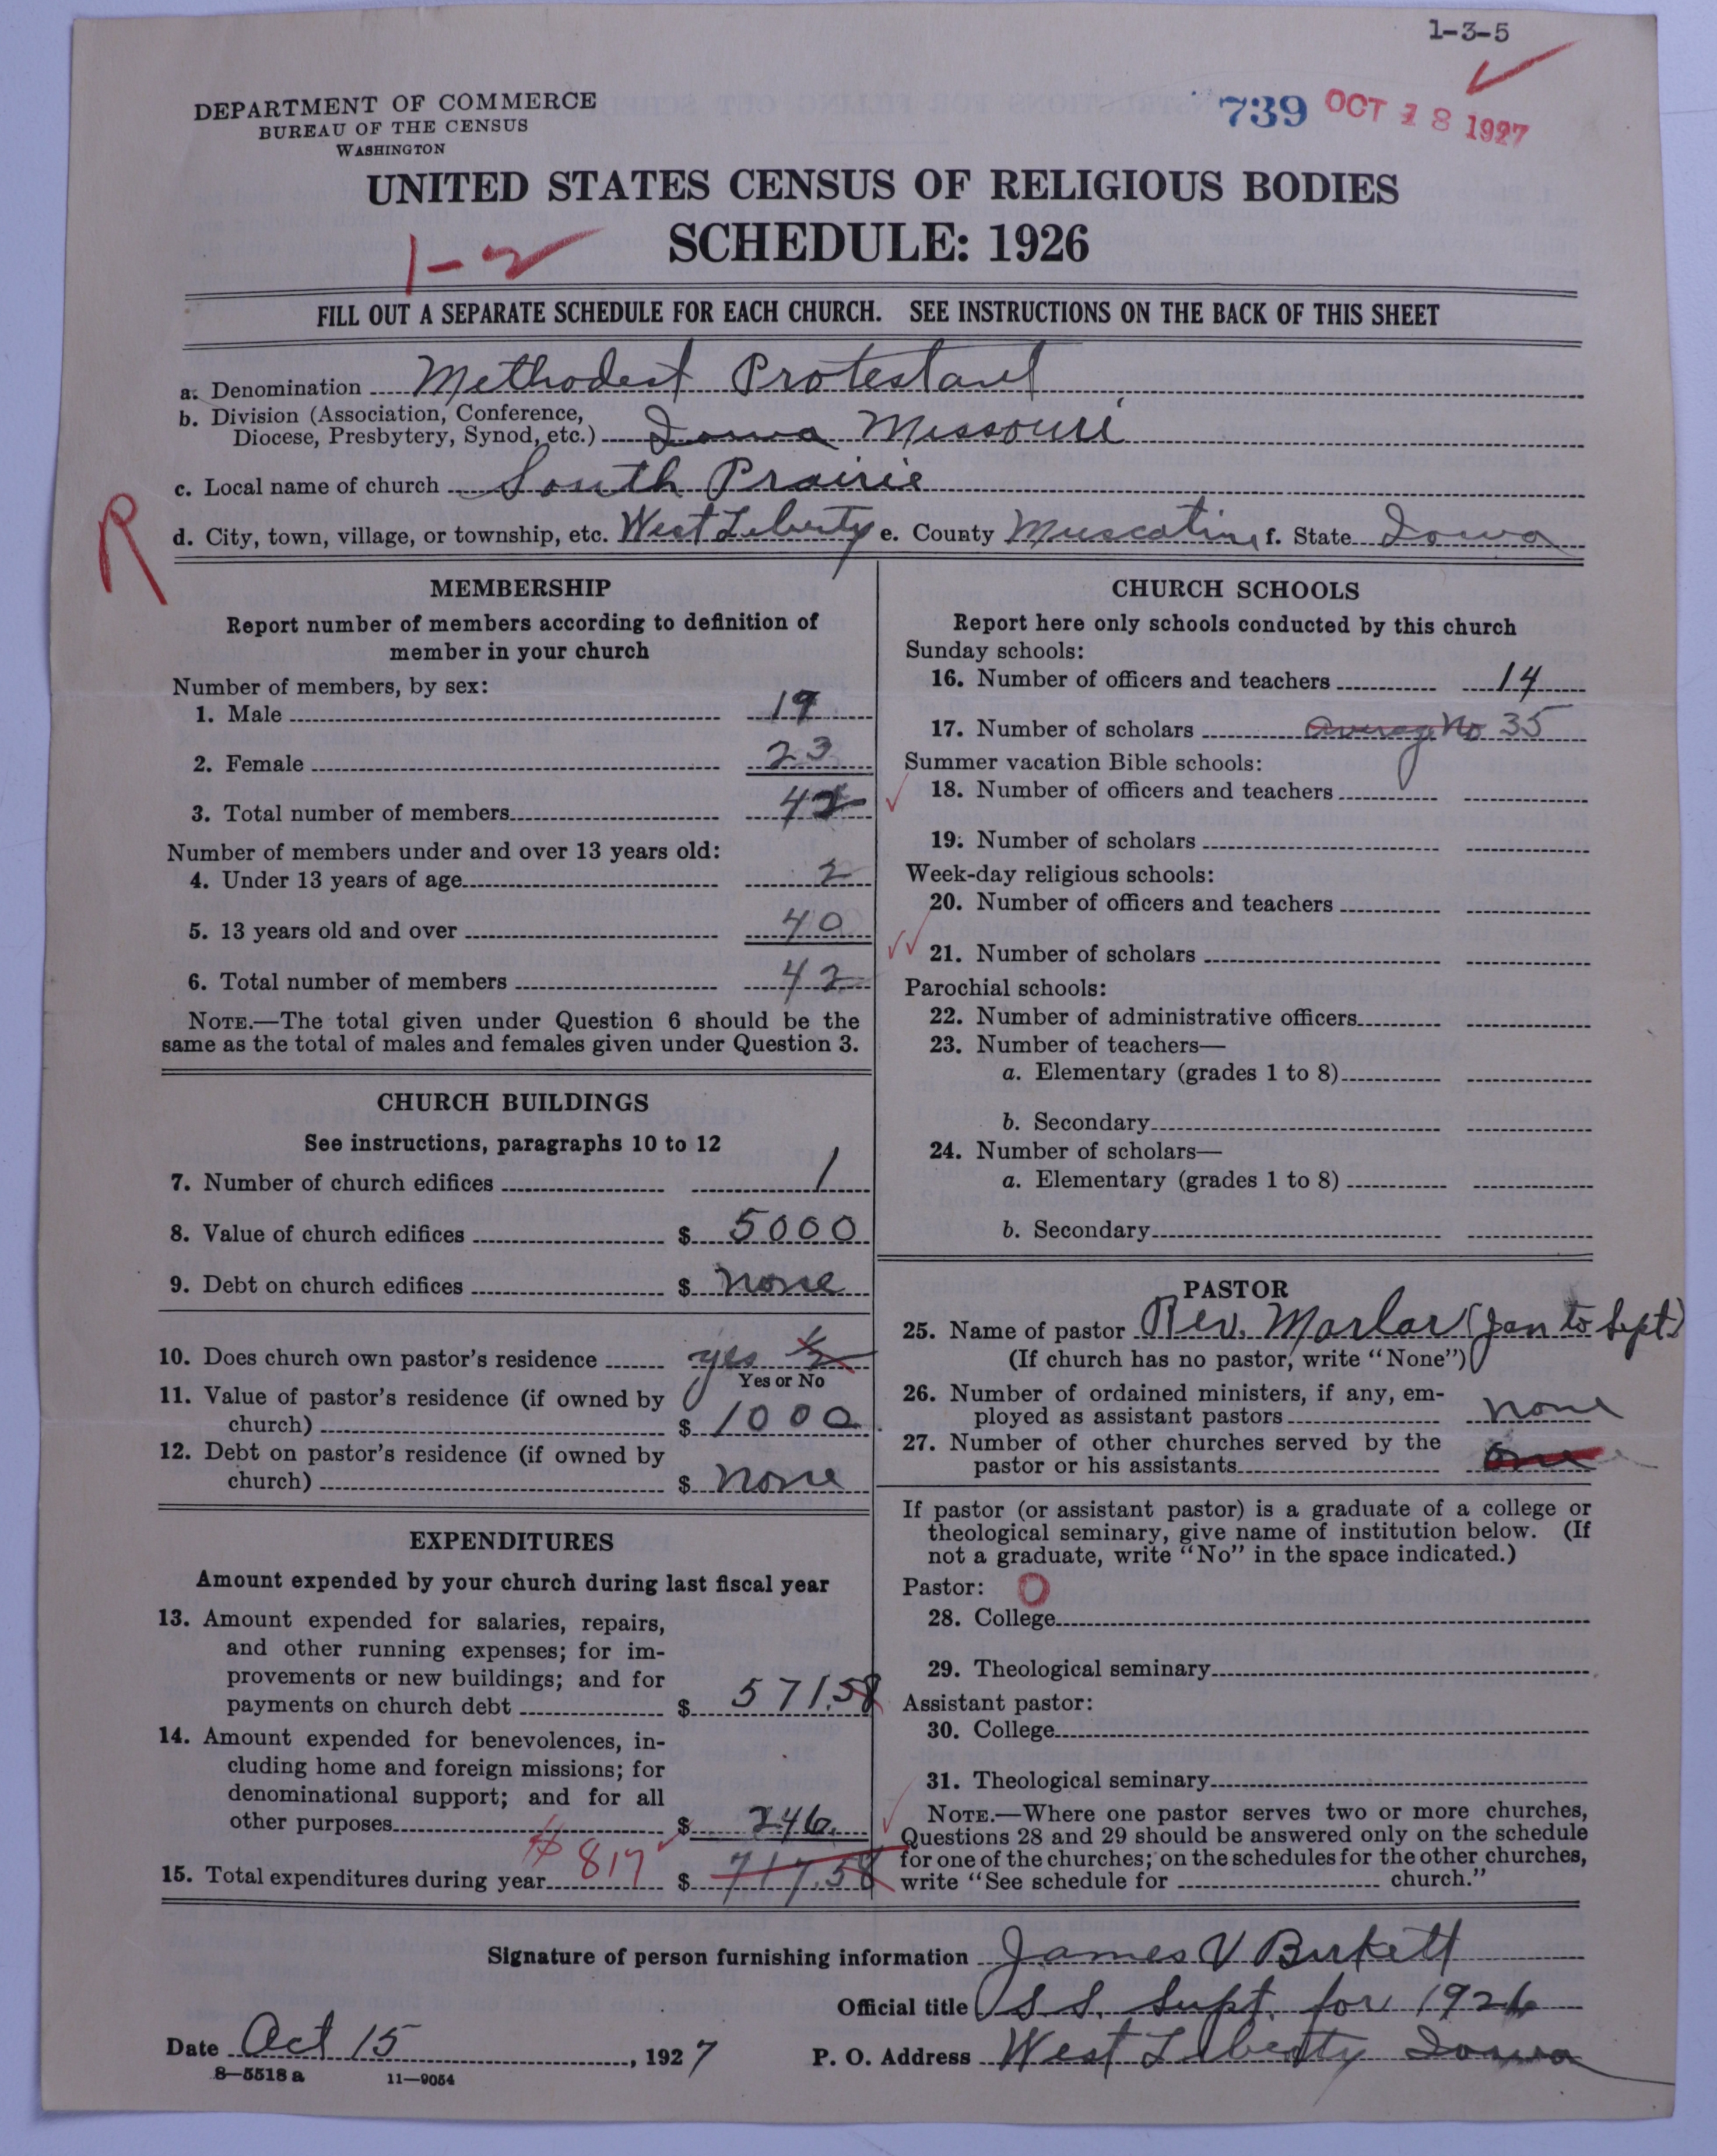 1-3-5
DEPARTMENT OF COMMERCE
BUREAU OF THE CENSUS
WASHINGTON
739 OCT 18 1927
UNITED STATES CENSUS OF RELIGIOUS BODIES
SCHEDULE: 1926
1-2
FILL OUT A SEPARATE SCHEDULE FOR EACH CHURCH. SEE INSTRUCTIONS ON THE BACK OF THIS SHEET
a. Denomination Methodist Protestant
b. Division (Association, Conference,
Diocese, Presbytery, Synod, etc.) Iowa Missouri
c. Local name of church South Prairie
R
d. City, town, village, or township, etc. West Liberty e. County Muscatine f. State Iowa
MEMBERSHIP
Report number of members according to definition of
member in your church
Number of members, by sex:
1. Male 19
2. Female 23
3. Total number of members 42
Number of members under and over 13 years old:
4. Under 13 years of age 2
5. 13 years old and over 40
6. Total number of members 42
NOTE.—The total given under Question 6 should be the
same as the total of males and females given under Question 3.
CHURCH BUILDINGS
See instructions, paragraphs 10 to 12
7. Number of church edifices 1
8. Value of church edifices $ 5000
9. Debt on church edifices $ none
10. Does church own pastor's residence yes 1/2
Yes or No
11. Value of pastor's residence (if owned by
church) $ 1000
12. Debt on pastor's residence (if owned by
church) $ none
EXPENDITURES
Amount expended by your church during last fiscal year
13. Amount expended for salaries, repairs,
and other running expenses; for im-
provements or new buildings; and for
payments on church debt $ 571.58
14. Amount expended for benevolences, in-
cluding home and foreign missions; for
denominational support; and for all
other purposes $ 246.
15. Total expenditures during year $817 $ 717.58
CHURCH SCHOOLS
Report here only schools conducted by this church
Sunday schools:
16. Number of officers and teachers 14
17. Number of scholars average No 35
Summer vacation Bible schools:
18. Number of officers and teachers
19. Number of scholars
Week-day religious schools:
20. Number of officers and teachers
21. Number of scholars
Parochial schools:
22. Number of administrative officers
23. Number of teachers—
a. Elementary (grades 1 to 8)
b. Secondary
24. Number of scholars—
a. Elementary (grades 1 to 8)
b. Secondary
PASTOR
25. Name of pastor Rev. Marlar (Jan to Sept)
(If church has no pastor, write "None")
26. Number of ordained ministers, if any, em-
ployed as assistant pastors none
27. Number of other churches served by the
pastor or his assistants one
If pastor (or assistant pastor) is a graduate of a college or
theological seminary, give name of institution below. (If
not a graduate, write "No" in the space indicated.)
Pastor: O
28. College
29. Theological seminary
Assistant pastor:
30. College
31. Theological seminary
NOTE.—Where one pastor serves two or more churches,
Questions 28 and 29 should be answered only on the schedule
for one of the churches; on the schedules for the other churches,
write "See schedule for church."
Signature of person furnishing information James V Birkett
Official title S.S. Supt. for 1926
Date Oct 15, 1927 P. O. Address West Liberty Iowa
8—5518 a 11—9054